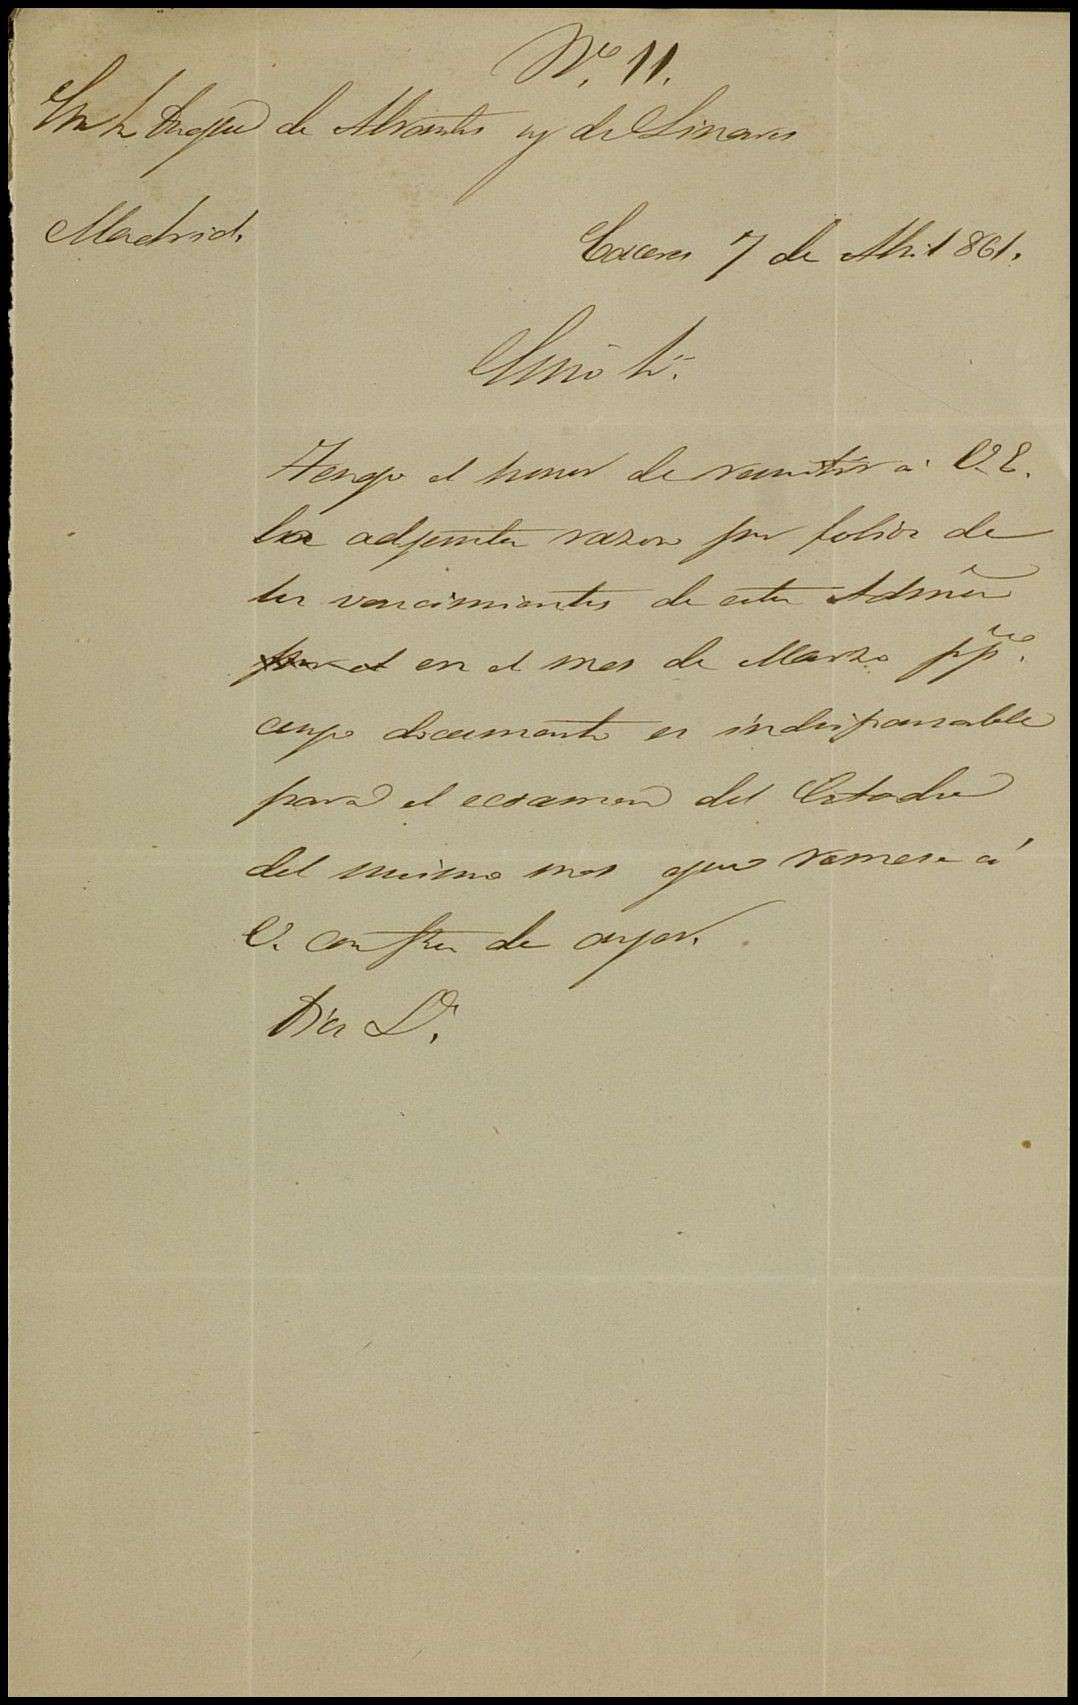 N.º 11.
Exmo Sr Duque de Abrantes y de Linares
Madrid.
Caceres 7 de Abril 861.
Exmo Sr.
Tengo el honor de remitir á V.E.
la adjunta razon por folios de
los vencimientos de esta Admon
por el en el mes de Marzo ppdo.
cuyo documento es indispensable
para el ecsamen del Estado
del mismo mes que remese á
V. con fha de ayer.
Dios